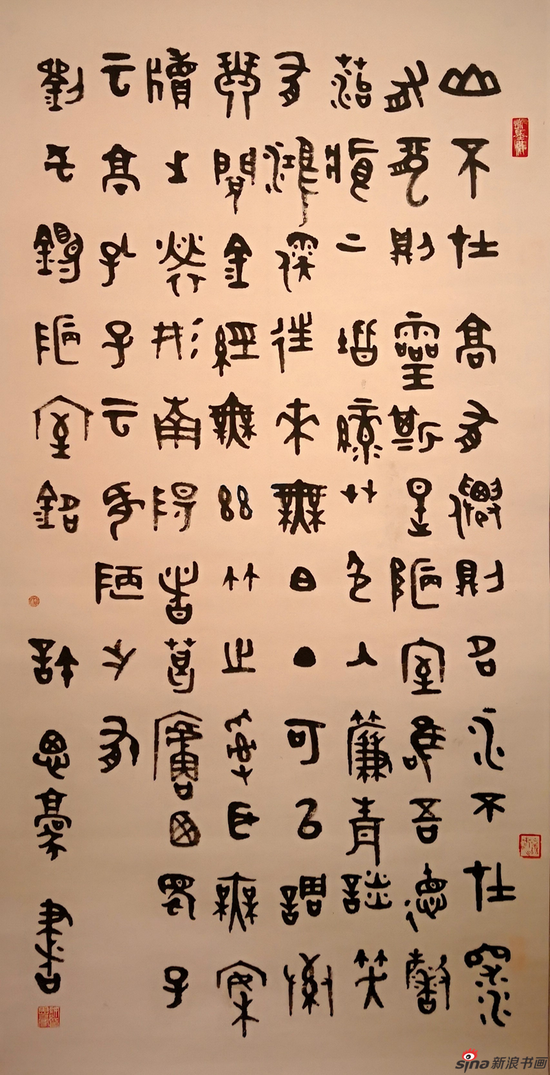 山不在高有僊則名水不在深
有龍則靈斯是陋室惟吾德馨
苔痕上階綠艸色入簾青談笑
有鴻儒往來無白丁可以調素
琴閱金經無絲竹之亂耳無案
牘之勞形南陽諸葛廬西蜀子
云亭孔子云何陋之有
劉禹錫陋室銘 許思豪書
sina新浪书画